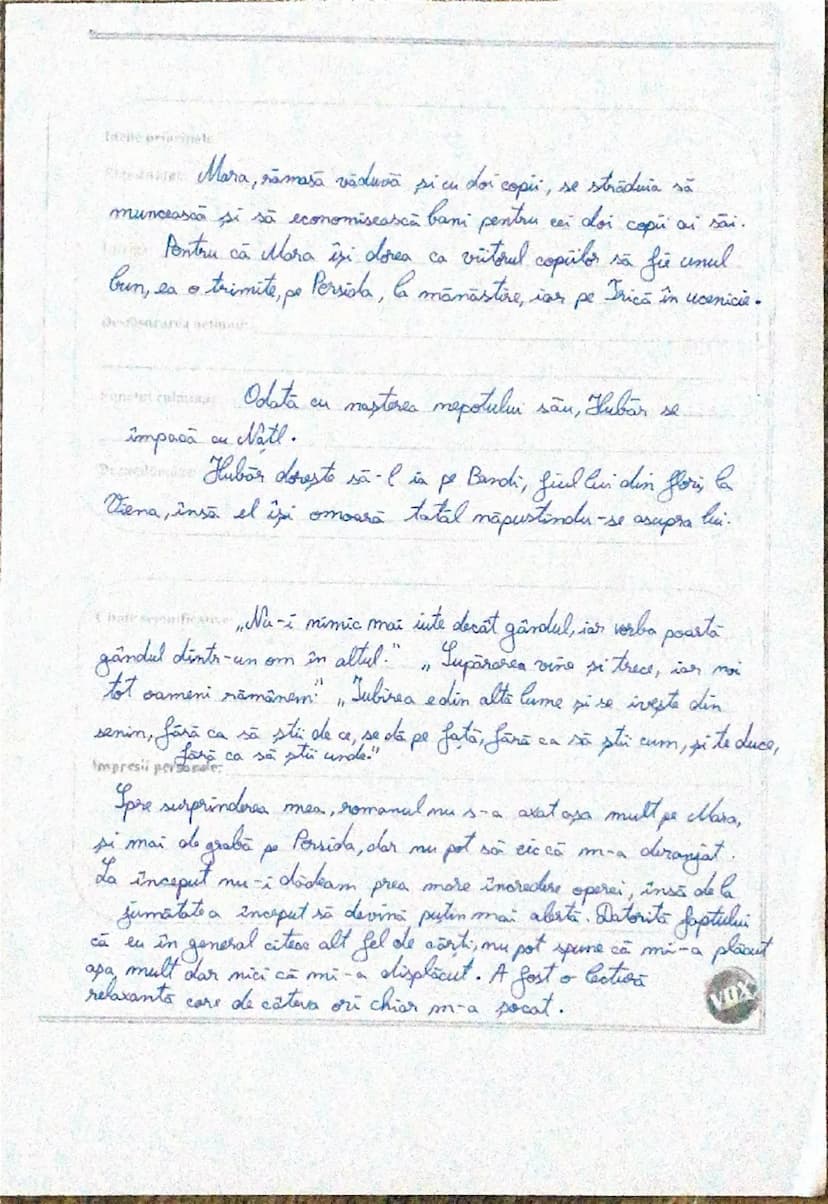 Ideile principale
Expozițiune: Mara, rămasă văduvă și cu doi copii, se străduia să
muncească și să economisească bani pentru cei doi copii ai săi.
Intriga: Pentru că Mara își dorea ca viitorul copiilor să fie unul
bun, ea o trimite, pe Persida, la mănăstire, iar pe Trică în ucenicie.
Desfășurarea acțiunii:
Punctul culminant: Odată cu nașterea nepotului său, Hubăr se
împacă cu Națl.
Deznodământ: Hubăr dorește să-l ia pe Bandi, fiul lui din flori, la
Viena, însă el își omoară tatăl năpustindu-se asupra lui.
Citate semnificative: „Nu-i nimic mai iute decât gândul, iar vorba poartă
gândul dintr-un om în altul." „Supărarea vine și trece, iar noi
tot oameni rămânem." „Iubirea e din altă lume și se ivește din
senin, fără ca să știi de ce, se dă pe față, fără ca să știi cum, și te duce,
fără ca să știi unde."
Impresii personale:
Spre surprinderea mea, romanul nu s-a axat așa mult pe Mara,
și mai de grabă pe Persida, dar nu pot să zic că m-a deranjat.
La început nu-i dădeam prea mare încredere operei, însă de la
jumătate a început să devină puțin mai alertă. Datorită faptului
că eu în general citesc alt fel de cărți, nu pot spune că mi-a plăcut
așa mult dar nici că mi-a displăcut. A fost o lectură
relaxantă care de câteva ori chiar m-a șocat.
VDX